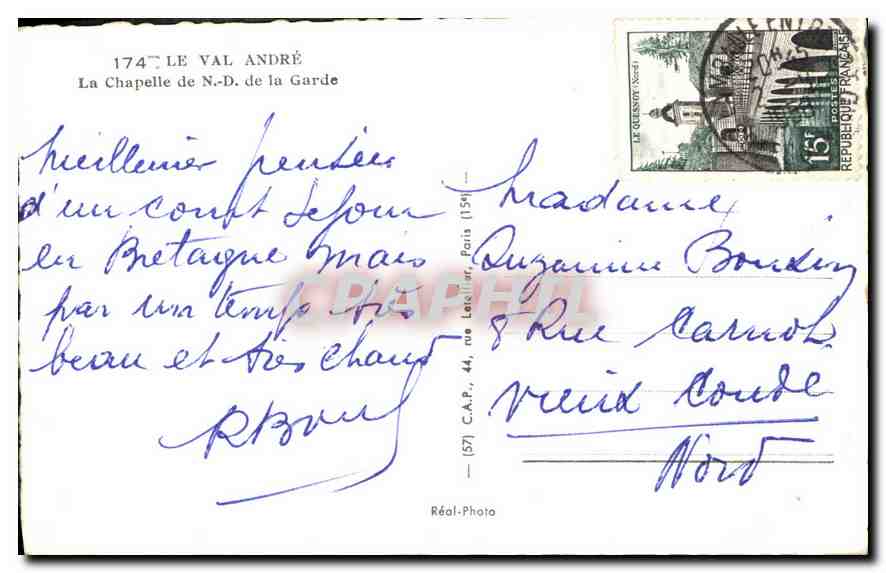 174 LE VAL ANDRÉ
La Chapelle de N.-D. de la Garde
Meilleures pensées
d'un court séjour
en Bretagne mais
par un temps très
beau et très chaud
RBoul
— (57) C.A.P., 44, rue Letellier, Paris (15e) —
Réal-Photo
LE QUESNOY (Nord)
15F
POSTES
REPUBLIQUE FRANÇAISE
Madame
Suzanne
8 Rue Carnot
Vieux Condé
Nord
CPAPHIL